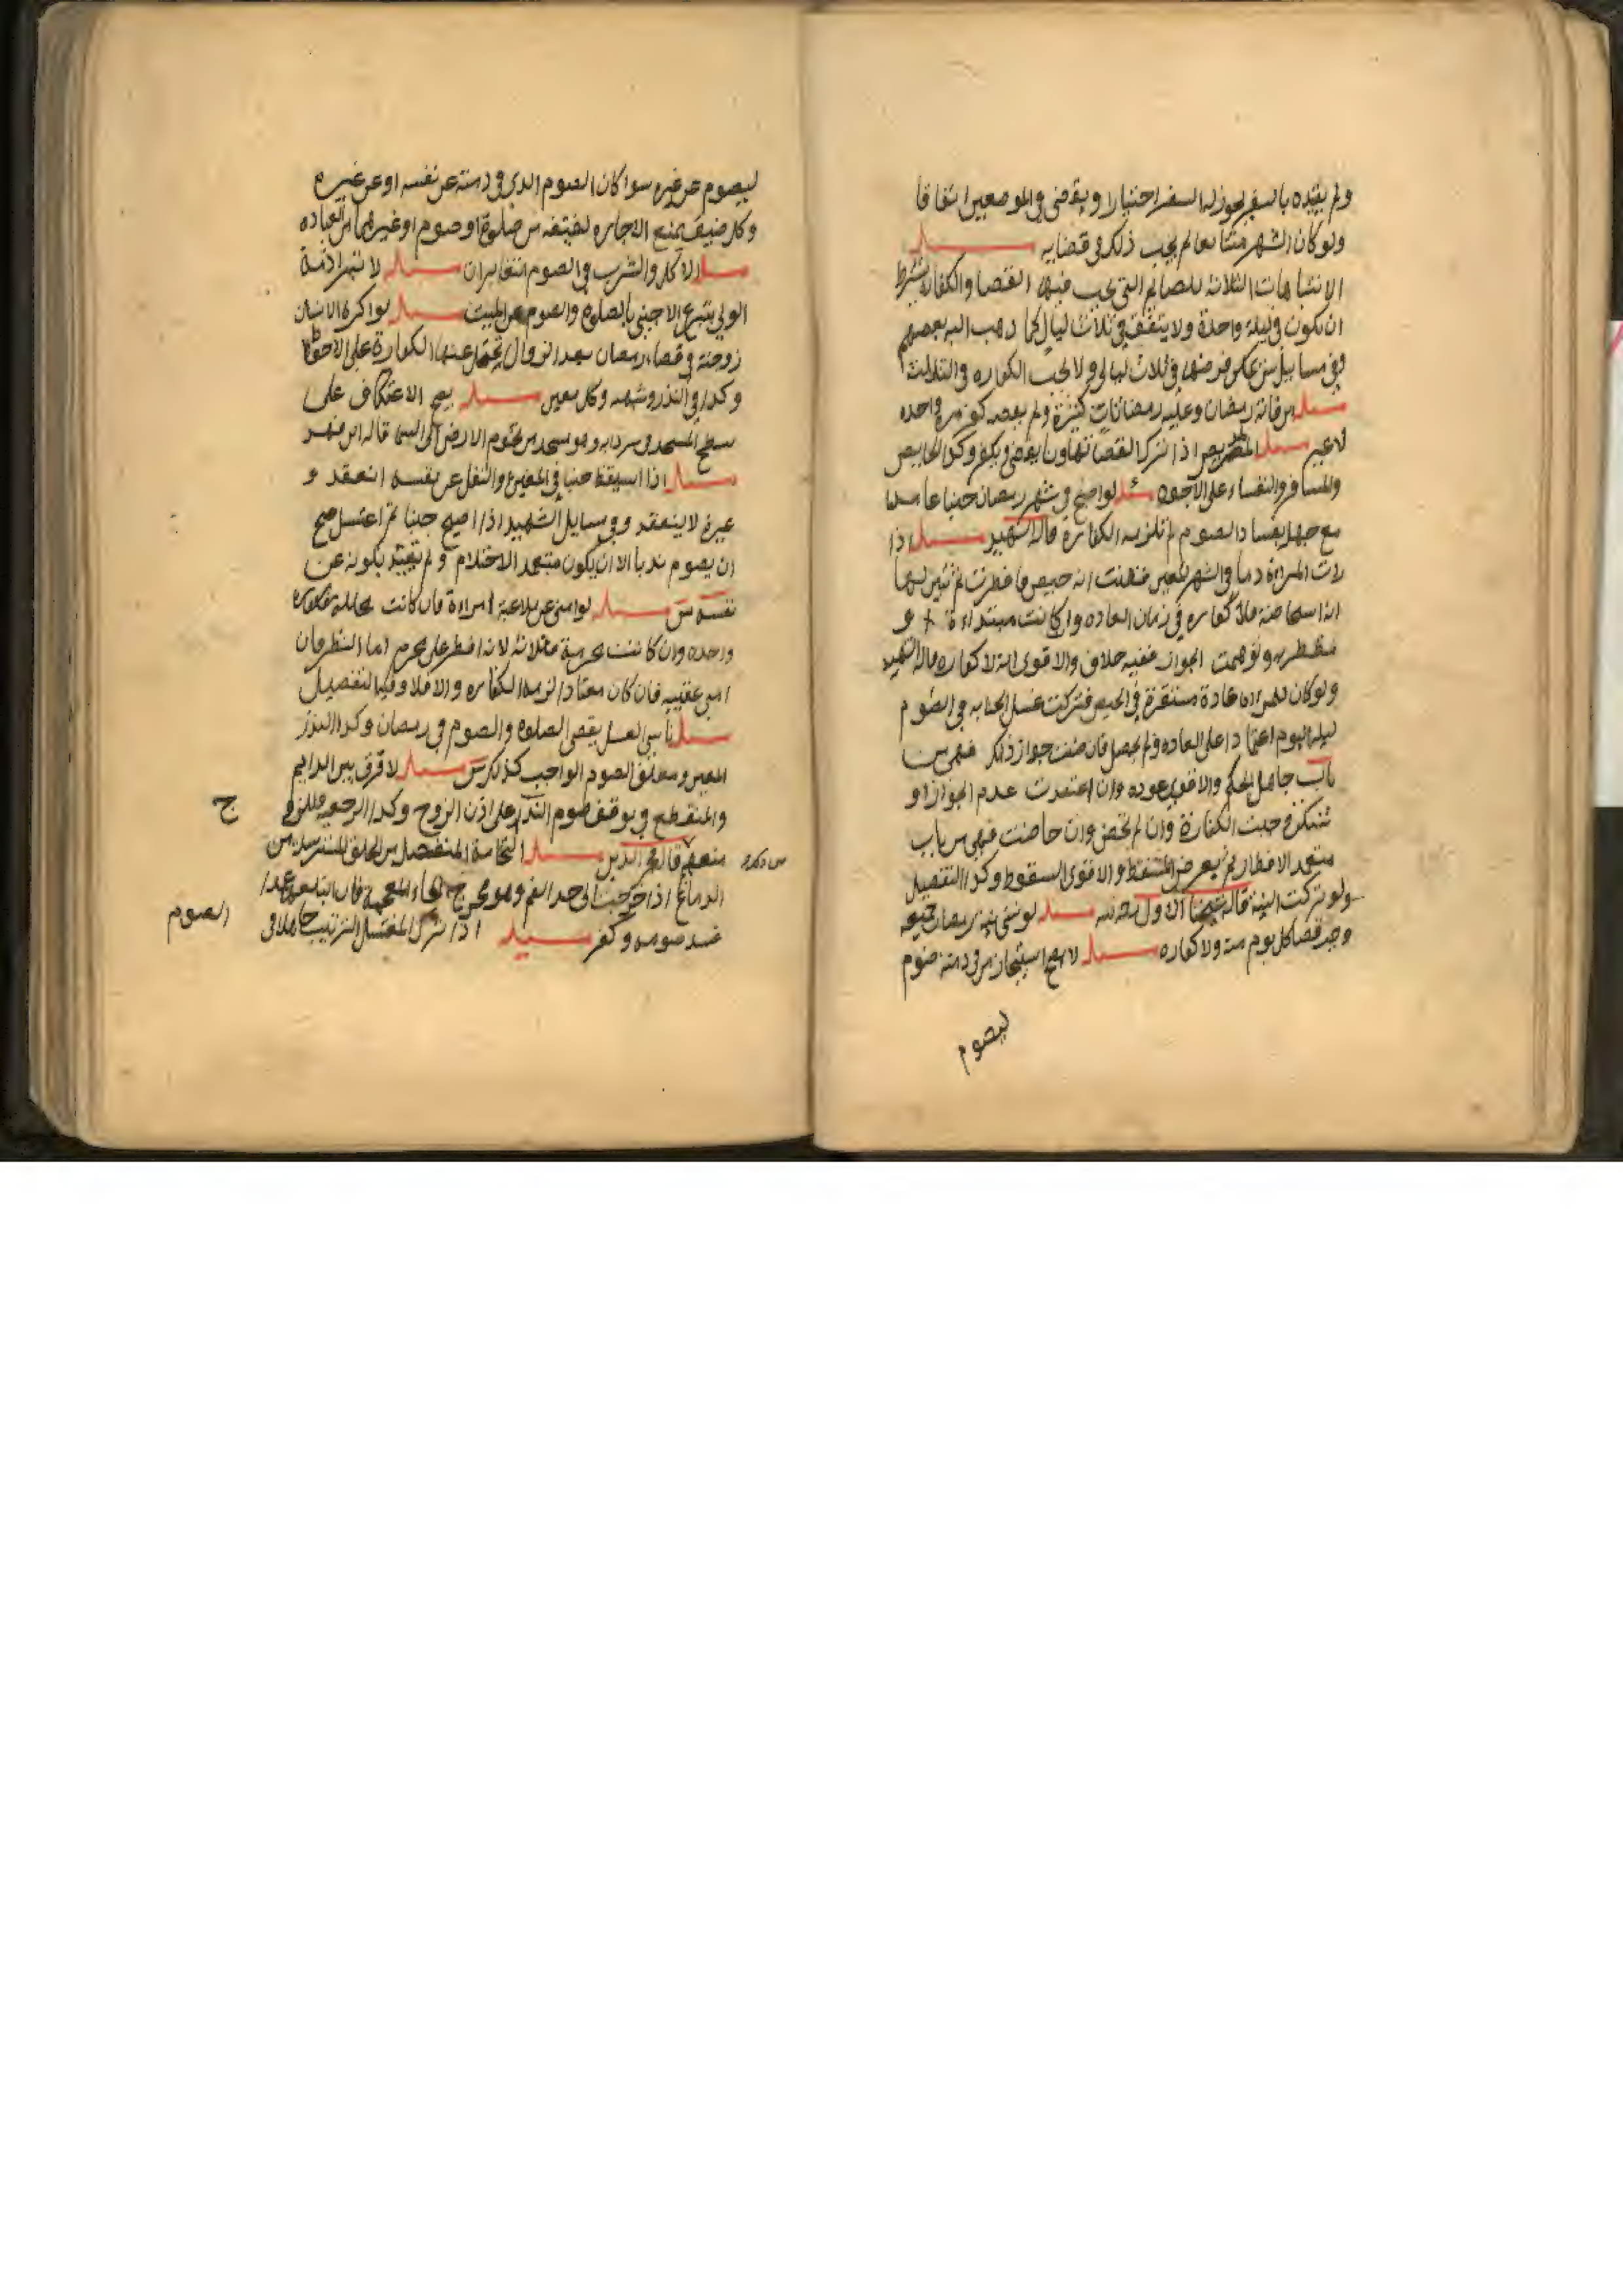 ولم يقيده بالسفر لجوز له السفر اختيارا ويقضي في الموضعين اتفاقا
ولو كان الشهر متتابعا لم يجب ذلك في قضايه مسله
الانتباهات الثلاثة للصائم التي يجب فيها القضا والكفاره يشترط
ان تكون في ليلة واحدة ولا يتفق في ثلاث ليال كما ذهب اليه بعضهم
في ثلاث ليالي ولا تجب الكفاره في الثلاث
مسله من فاته رمضان وعليه رمضانات كثيرة ولم يصمه كفر مرة واحده
لا غير مسله المريض اذا ترك القضا تهاونا يقضي ويكفر وكذا الحايض
والمسافر والنفساء على الاجود مسله لو اصبح في شهر رمضان جنبا عامدا
مع جهله بفساد الصوم لم تلزمه الكفاره قاله الشهيد مسله اذا
رات المراة دما في الشهر المعين فظنت انه حيض فافطرت ثم تبين لها
انه استحاضة فلا كفاره في زمان العاده وان كانت مبتداءة او
مضطربه وتوهمت الجواز ففيه خلاف والاقوى انه لا كفاره قاله الشهيد
ولو كان للمراه عادة مستقرة في الحيض فتركت غسل الجنابه في الصوم
ليله اليوم اعتمادا على العاده ولم يحصل فان ظنت جواز ذلك فهي من
باب جاهل الحكم والاقوى عوده وان اعتقدت عدم الجواز او
شكت وجبت الكفارة وان لم تحض وان حاضت فهي من باب
متعمد الافطار ثم يعرض المسقط والاقوى السقوط وكذا التفصيل
ولو تركت النية قاله شيخنا الاول مسله لو نسي نية رمضان جميعه
وجب قضا كل يوم منه ولا كفاره مسله لا يصح استيجار من في ذمته صوم
ليصوم
ليصوم عن غيره سوا كان الصوم الذي في ذمته عن نفسه او عن غيره
وكل ضيق يمنع الاجاره من صلوة او صوم او غيرهما من العباده
مسله الاكل والشرب في الصوم متغايران مسله لا تبرا ذمة
الولي بتبرع الاجنبي بالصلوه والصوم عن الميت مسله لو اكره الانسان
زوجته في قضاء رمضان بعد الزوال تحمل عنها الكفارة على الاحوط
وكذا في النذر وشبهه وكل معين مسله يصح الاعتكاف على
سطح المسجد وسردابه وهو مسجد من تخوم الارض الى السما قاله ابن فهد
مسله اذا استيقظ جنبا في المعين والنفل عن نفسه انعقد و
غيره لا ينعقد وفي مسايل الشهيد اذا اصبح جنبا ثم اغتسل صح
ان يصوم ندبا الا ان يكون متعمد الاحتلام ولم يقيد بكونه عن
نفسه مسله لو امنى عن ملاعبة امراءة فان كانت محلله فكفاره
واحده وان كانت محرمة فثلاثة لانه افطر على محرم اما النظر فان
امنى عقيبه فان كان معتادا لزمه الكفاره والا فلا وفيه التفصيل
مسله ناسي الغسل يقضي الصلوه والصوم في رمضان وكذا النذر
المعين ومطلق الصوم الواجب كذلك مسله لا فرق بين الدايم
والمنقطع في توقف صوم النذر على اذن الزوج وكذا الرجعيه
منعهم قاله فخر الدين مسله النخامة المنفصل من الحلق المسترسله من
الدماغ اذا خرجت الى حد الفم وهو مخرج الخاء المعجمة فان ابتلعه عمدا
فسد صومه وكفر مسيله اذا ترك المغتسل الترتيب جاهلا في
الصوم